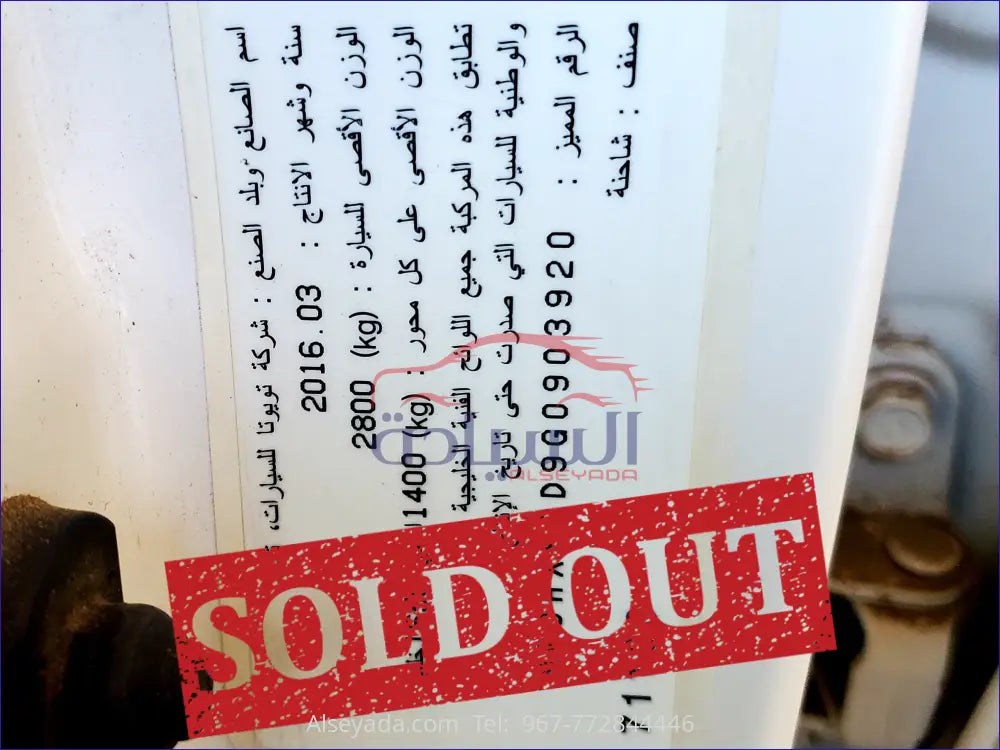 اسم الصانع وبلد الصنع : شركة تويوتا للسيارات،
سنة وشهر الانتاج : 2016.03
الوزن الأقصى للسيارة : (kg) 2800
الوزن الأقصى على كل محور : (kg) 1400
تطابق هذه المركبة جميع اللوائح الفنية الخليجية
والوطنية للسيارات التي صدرت حتى تاريخ
الرقم المميز : D9G0903920
صنف : شاحنة
السيادة
ALSEYADA
SOLD OUT
Alseyada.com Tel: 967-772844446